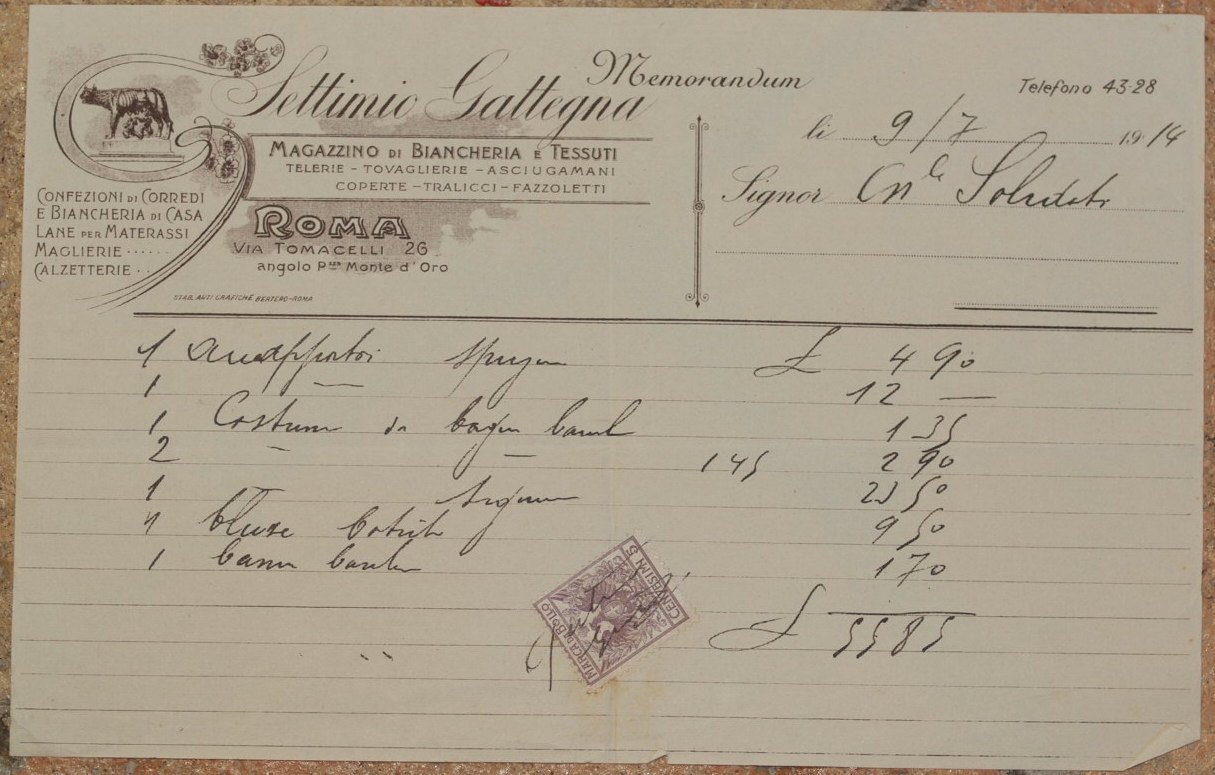 Settimio Gattegna
Memorandum
Telefono 43-28
li 9/7 1914
Signor
MAGAZZINO DI BIANCHERIA E TESSUTI
TELERIE - TOVAGLIERIE - ASCIUGAMANI
COPERTE - TRALICCI - FAZZOLETTI
CONFEZIONI DI CORREDI
E BIANCHERIA DI CASA
LANE PER MATERASSI
MAGLIERIE
CALZETTERIE
ROMA
VIA TOMACELLI 26
angolo Pzza Monte d'Oro
STAB. ARTI GRAFICHE BERTERO-ROMA
1 £ 4 90
1 — 12 —
1 Costume da bagno 1 35
2 — — 145 2 90
1 23 50
1 bluse 9 50
1 1 70
£ 55 85
MARCA DA BOLLO
CENTESIMI 5